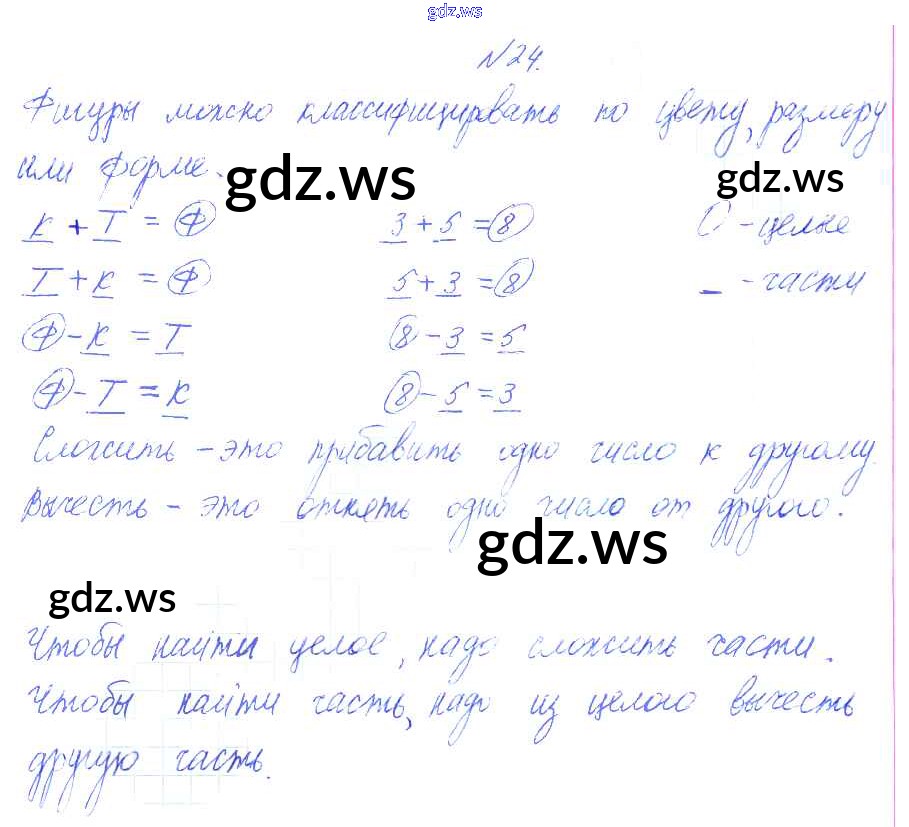 gdz.ws
№24.
Фигуры можно классифицировать по цвету, размеру
или форме.
gdz.ws gdz.ws
К + Т = Ф 3 + 5 = 8 О - целые
Т + К = Ф 5 + 3 = 8 _ - части
Ф - К = Т 8 - 3 = 5
Ф - Т = К 8 - 5 = 3
Сложить - это прибавить одно число к другому.
Вычесть - это отнять одно число от другого.
gdz.ws
gdz.ws
Чтобы найти целое, надо сложить части.
Чтобы найти часть, надо из целого вычесть
другую часть.